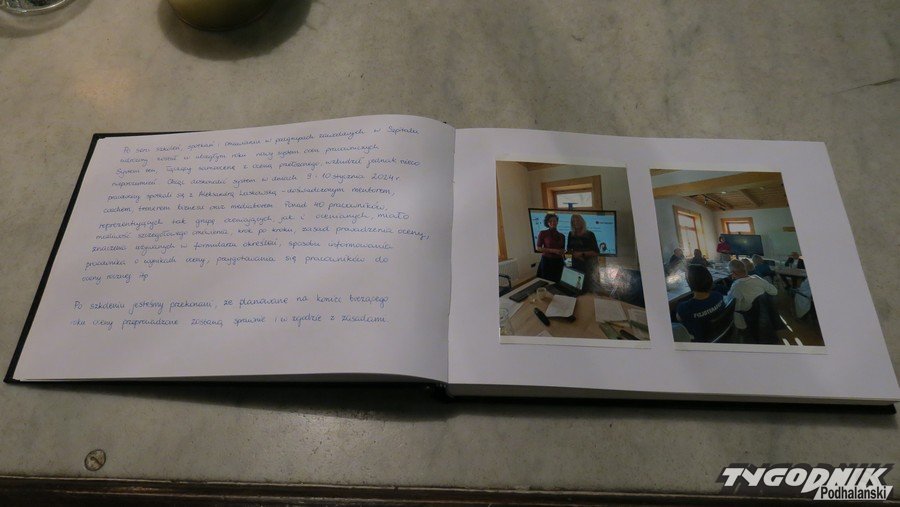 Po serii szkoleń, spotkań i omawianiu w podgrupach zawodowych w Szpitalu
wdrożony został w ubiegłym roku nowy system ocen pracowniczych.
System ten, łączący samoocenę z oceną przełożonego, wzbudził jednak nieco
nieporozumień. Chcąc doskonalić system w dniach 9 i 10 stycznia 2024 r.
pracownicy spotkali się z Aleksandrą - doświadczonym mentorem,
coachem, trenerem biznesu oraz mediatorem. Ponad 40 pracowników,
reprezentujących tak grupę oceniających, jak i ocenianych, miało
możliwość szczegółowego omówienia, krok po kroku, zasad prowadzenia oceny,
znaczenia używanych w formularzu określeń, sposobu informowania
pracownika o wynikach oceny, przygotowania się pracowników do
oceny rocznej itp.
Po szkoleniu jesteśmy przekonani, że planowane na koniec bieżącego
roku oceny przeprowadzone zostaną sprawnie i w zgodzie z zasadami.
TYGODNIK
Podhalański